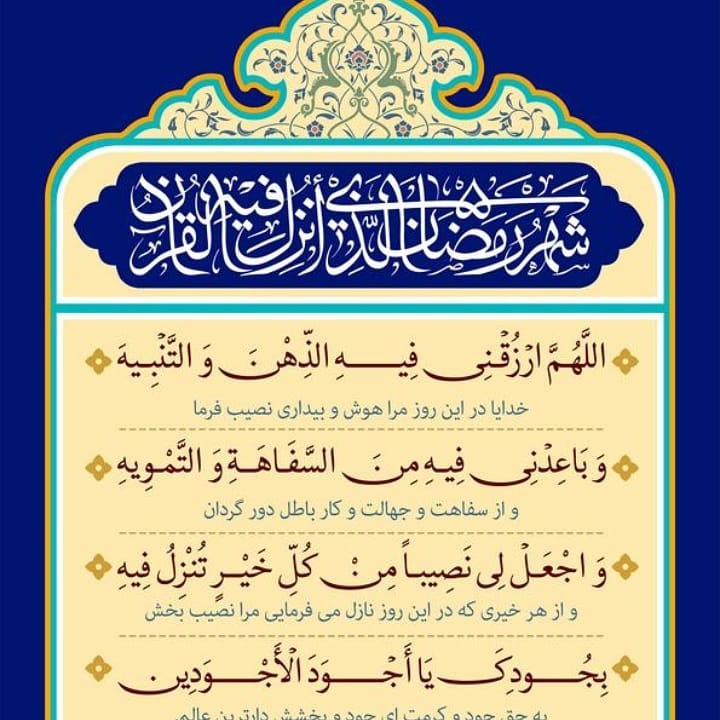 شَهْرُ رَمَضَانَ الَّذِي أُنْزِلَ فِيهِ الْقُرْآنُ
اللَّهُمَّ ارْزُقْنِي فِيهِ الذِّهْنَ وَ التَّنْبِيهَ
خدایا در این روز مرا هوش و بیداری نصیب فرما
وَ بَاعِدْنِي فِيهِ مِنَ السَّفَاهَةِ وَ التَّمْوِيهِ
و از سفاهت و جهالت و کار باطل دور گردان
وَ اجْعَلْ لِي نَصِيباً مِنْ كُلِّ خَيْرٍ تُنْزِلُ فِيهِ
و از هر خیری که در این روز نازل می فرمایی مرا نصیب بخش
بِجُودِكَ يَا أَجْوَدَ الْأَجْوَدِينَ
به حق جود و کرمت ای جود و بخشش دارترین عالم